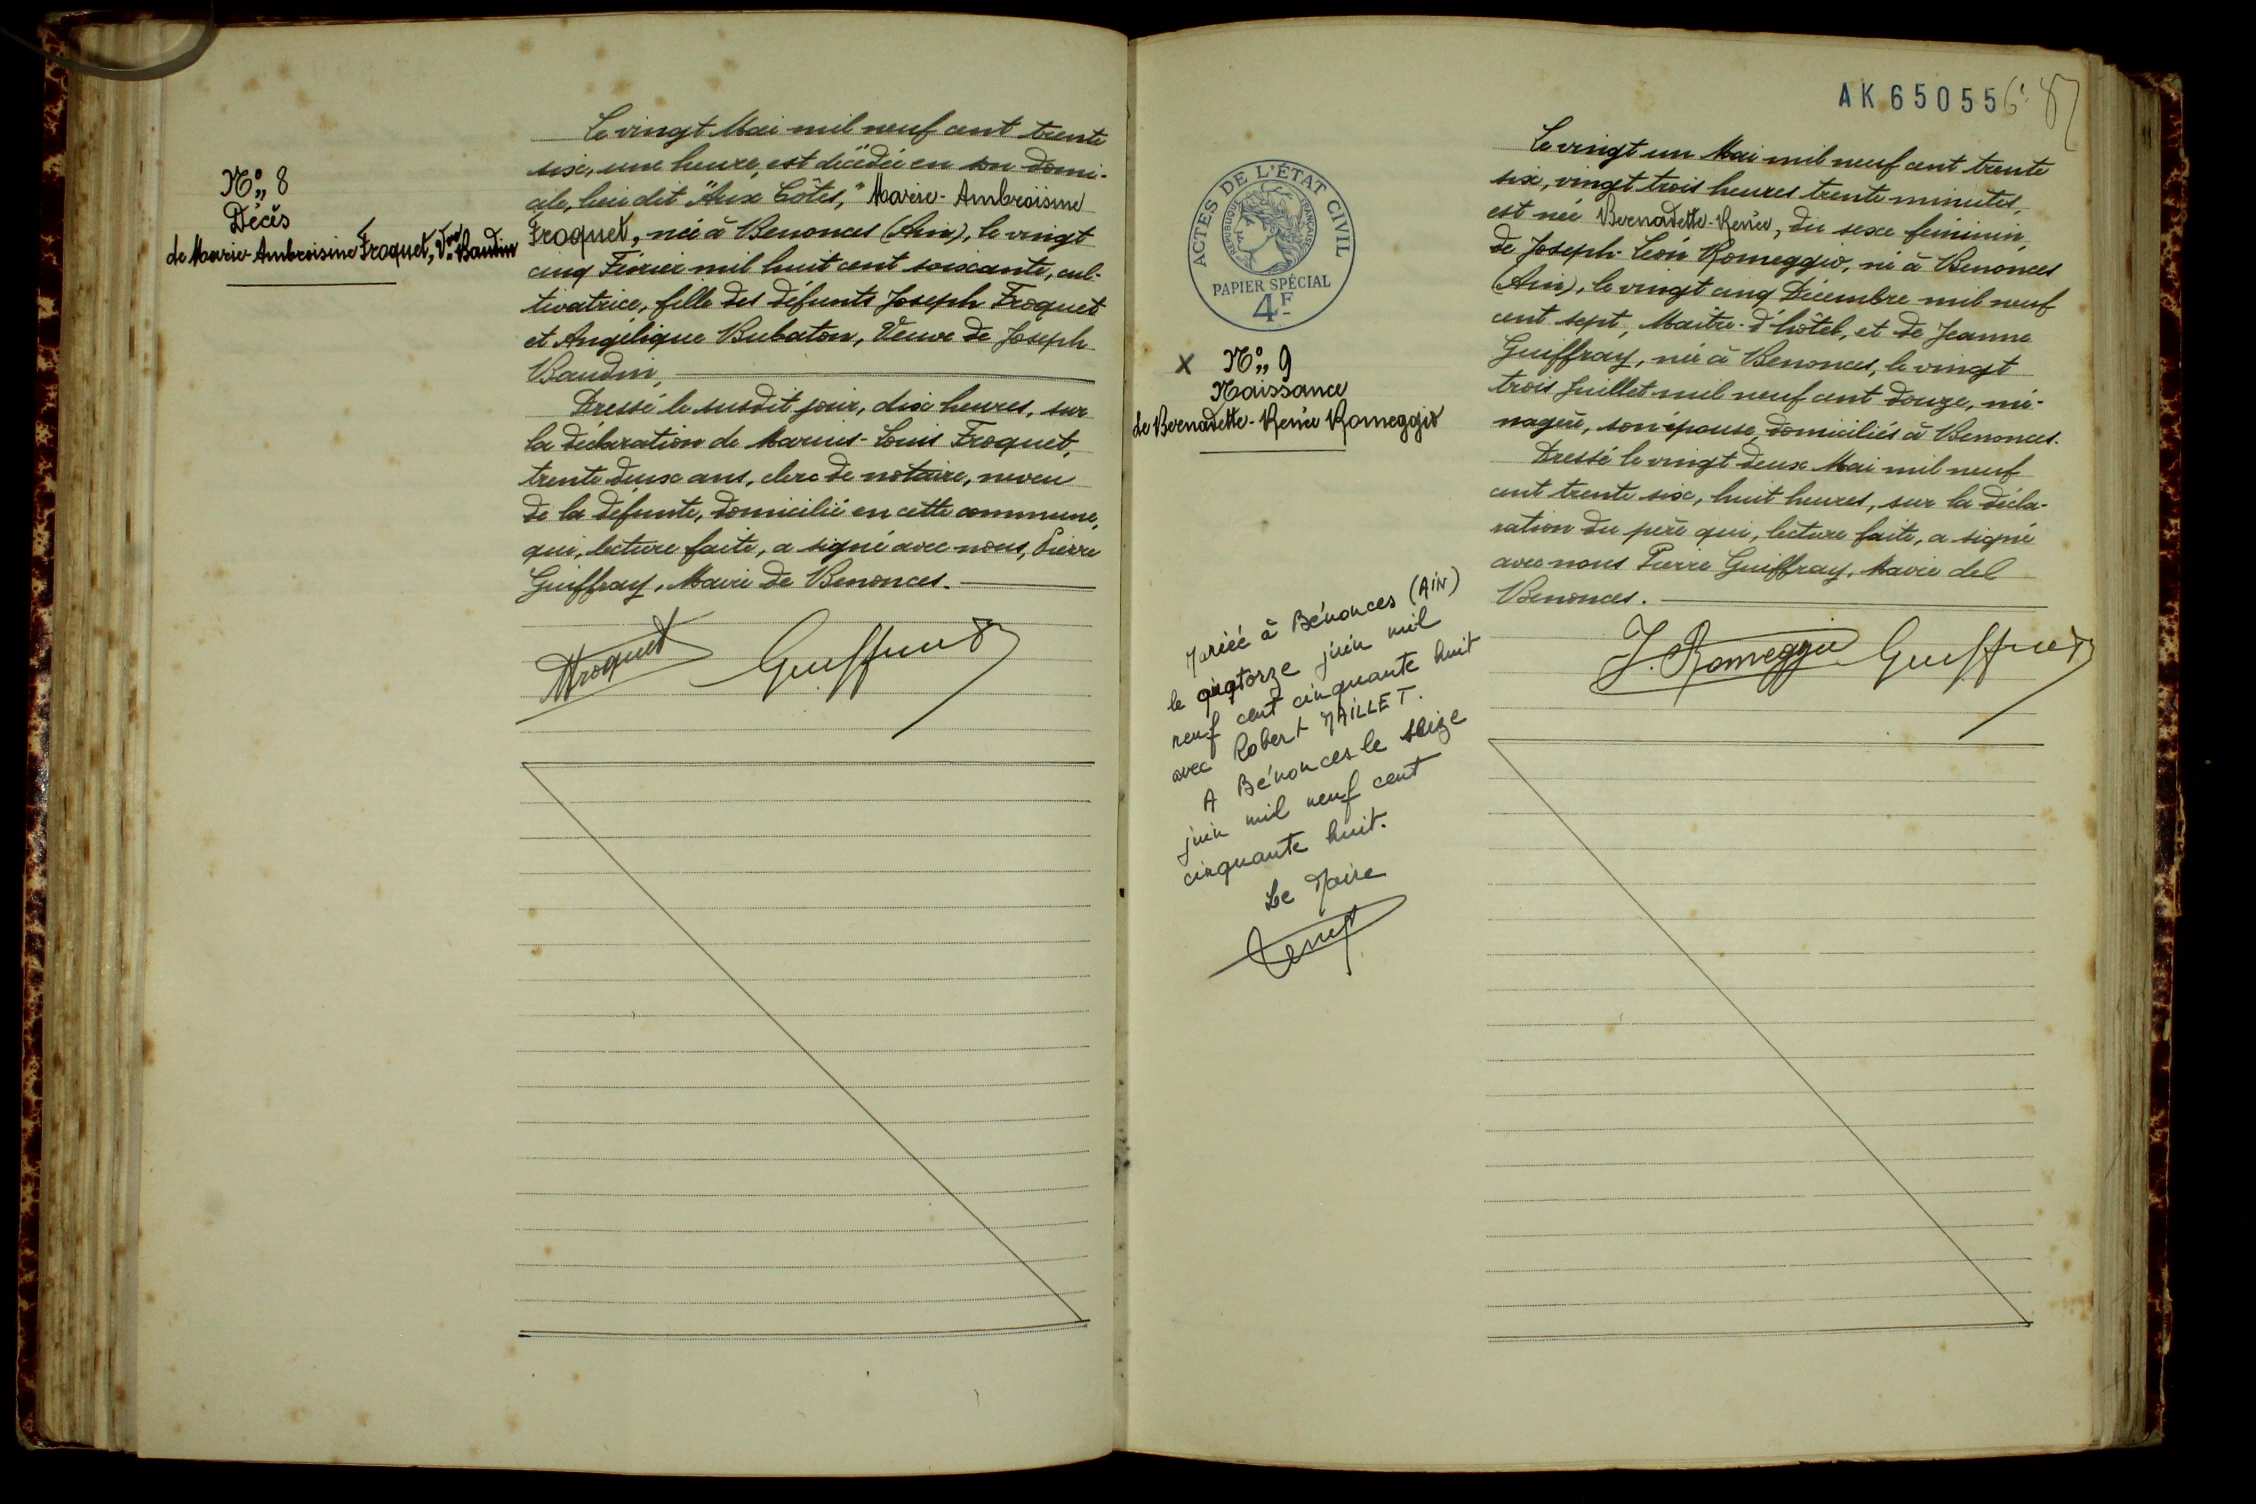 N°,, 8
Décès
de Marie-Ambroisine Froquet, Vve Baudin
Le vingt Mai mil neuf cent trente
six, une heure, est décédée en son domi-
cile, lieu dit "Aux Côtes," Marie-Ambroisine
Froquet, née à Benonces (Ain), le vingt
cinq Février mil huit cent soixante, cul-
tivatrice, fille des défunts Joseph Froquet
et Angélique Bubaton, Veuve de Joseph
Baudin,
Dressé le susdit jour, dix heures, sur
la déclaration de Marius-Louis Froquet,
trente deux ans, clerc de notaire, neveu
de la défunte, domicilié en cette commune,
qui, lecture faite, a signé avec nous, Pierre
Guiffray, Maire de Benonces.
Froquet Guiffray
AK 65055 6. 87
ACTES DE L'ÉTAT CIVIL
RÉPUBLIQUE FRANÇAISE
PAPIER SPÉCIAL
4F
X N°,, 9
Naissance
de Bernadette-Renée Romeggio
Le vingt un Mai mil neuf cent trente
six, vingt trois heures trente minutes,
est née Bernadette-Renée, du sexe féminin,
de Joseph-Léon Romeggio, né à Benonces
(Ain), le vingt cinq Décembre mil neuf
cent sept, Maître-d'hôtel, et de Jeanne
Guiffray, née à Benonces, le vingt
trois Juillet mil neuf cent douze, mé-
nagère, son épouse, domiciliés à Benonces.
Dressé le vingt deux Mai mil neuf
cent trente six, huit heures, sur la décla-
ration du père qui, lecture faite, a signé
avec nous Pierre Guiffray, Maire de
Benonces.
J. Romeggio Guiffray
Mariée à Bénonces (AIN)
le quatorze juin mil
neuf cent cinquante huit
avec Robert MAILLET.
A Bénonces le seize
juin mil neuf cent
cinquante huit.
Le Maire